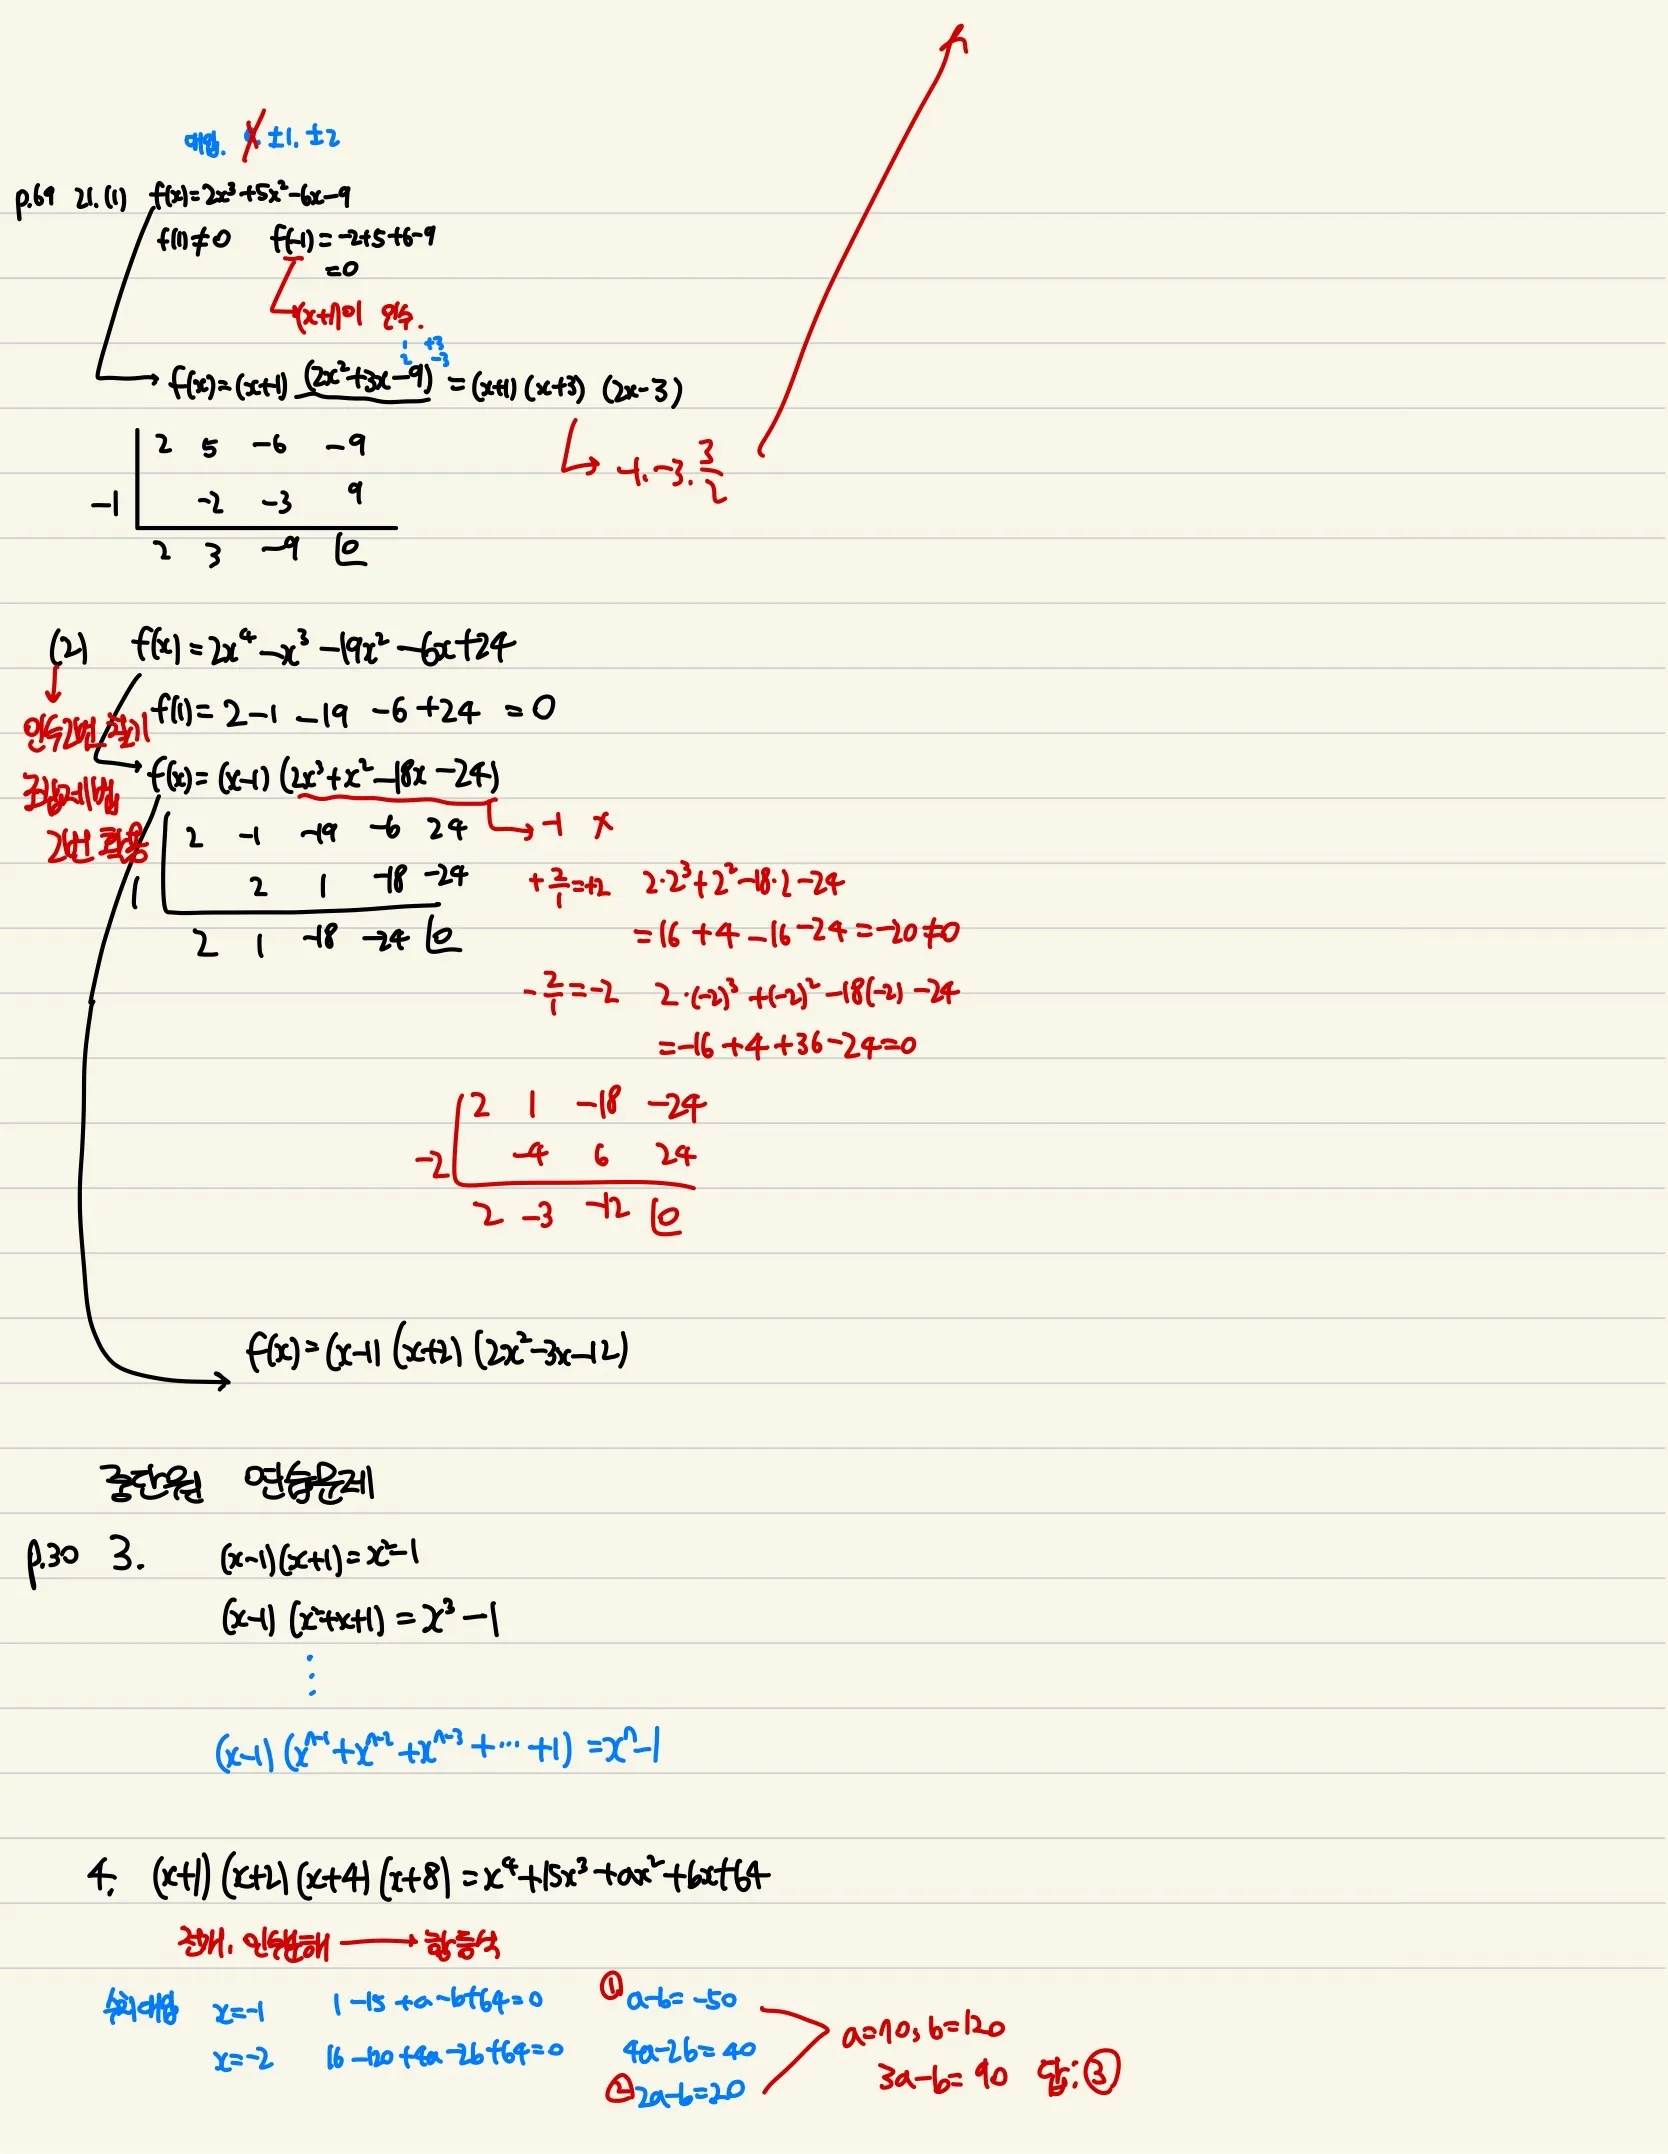 대입. ±1. ±2
p.69 21.(1) f(x)=2x³+5x²-6x-9
f(1)≠0 f(-1)=-2+5+6-9
=0
(x+1)이 인수.
1 +3
2 -3
f(x)=(x+1)(2x²+3x-9)=(x+1)(x+3)(2x-3)
2 5 -6 -9
-1. -3. 3/2
-1 -2 -3 9
2 3 -9 0
(2) f(x)=2x⁴-x³-19x²-6x+24
f(1)=2-1-19-6+24=0
인수2번 찾기
f(x)=(x-1)(2x³+x²-18x-24)
조립제법
2번 활용
2 -1 -19 -6 24 → -1 x
1 2 1 -18 -24
2 1 -18 -24 0
+2/1=+2 2·2³+2²-18·2-24
=16+4-16-24=-20≠0
-2/1=-2 2·(-2)³+(-2)²-18(-2)-24
=-16+4+36-24=0
2 1 -18 -24
-2 -4 6 24
2 -3 -12 0
f(x)=(x-1)(x+2)(2x²-3x-12)
중단원 연습문제
p.30 3. (x-1)(x+1)=x²-1
(x-1)(x²+x+1)=x³-1
⋮
(x-1)(xⁿ⁻¹+xⁿ⁻²+xⁿ⁻³+⋯+1)=xⁿ-1
4. (x+1)(x+2)(x+4)(x+8)=x⁴+15x³+ax²+bx+64
전개, 인수분해 → 항등식
수치대입 x=-1 1-15+a-b+64=0 ① a-b=-50
x=-2 16-120+4a-2b+64=0 4a-2b=40
② 2a-b=20
a=70, b=120
3a-b=90 답: ③